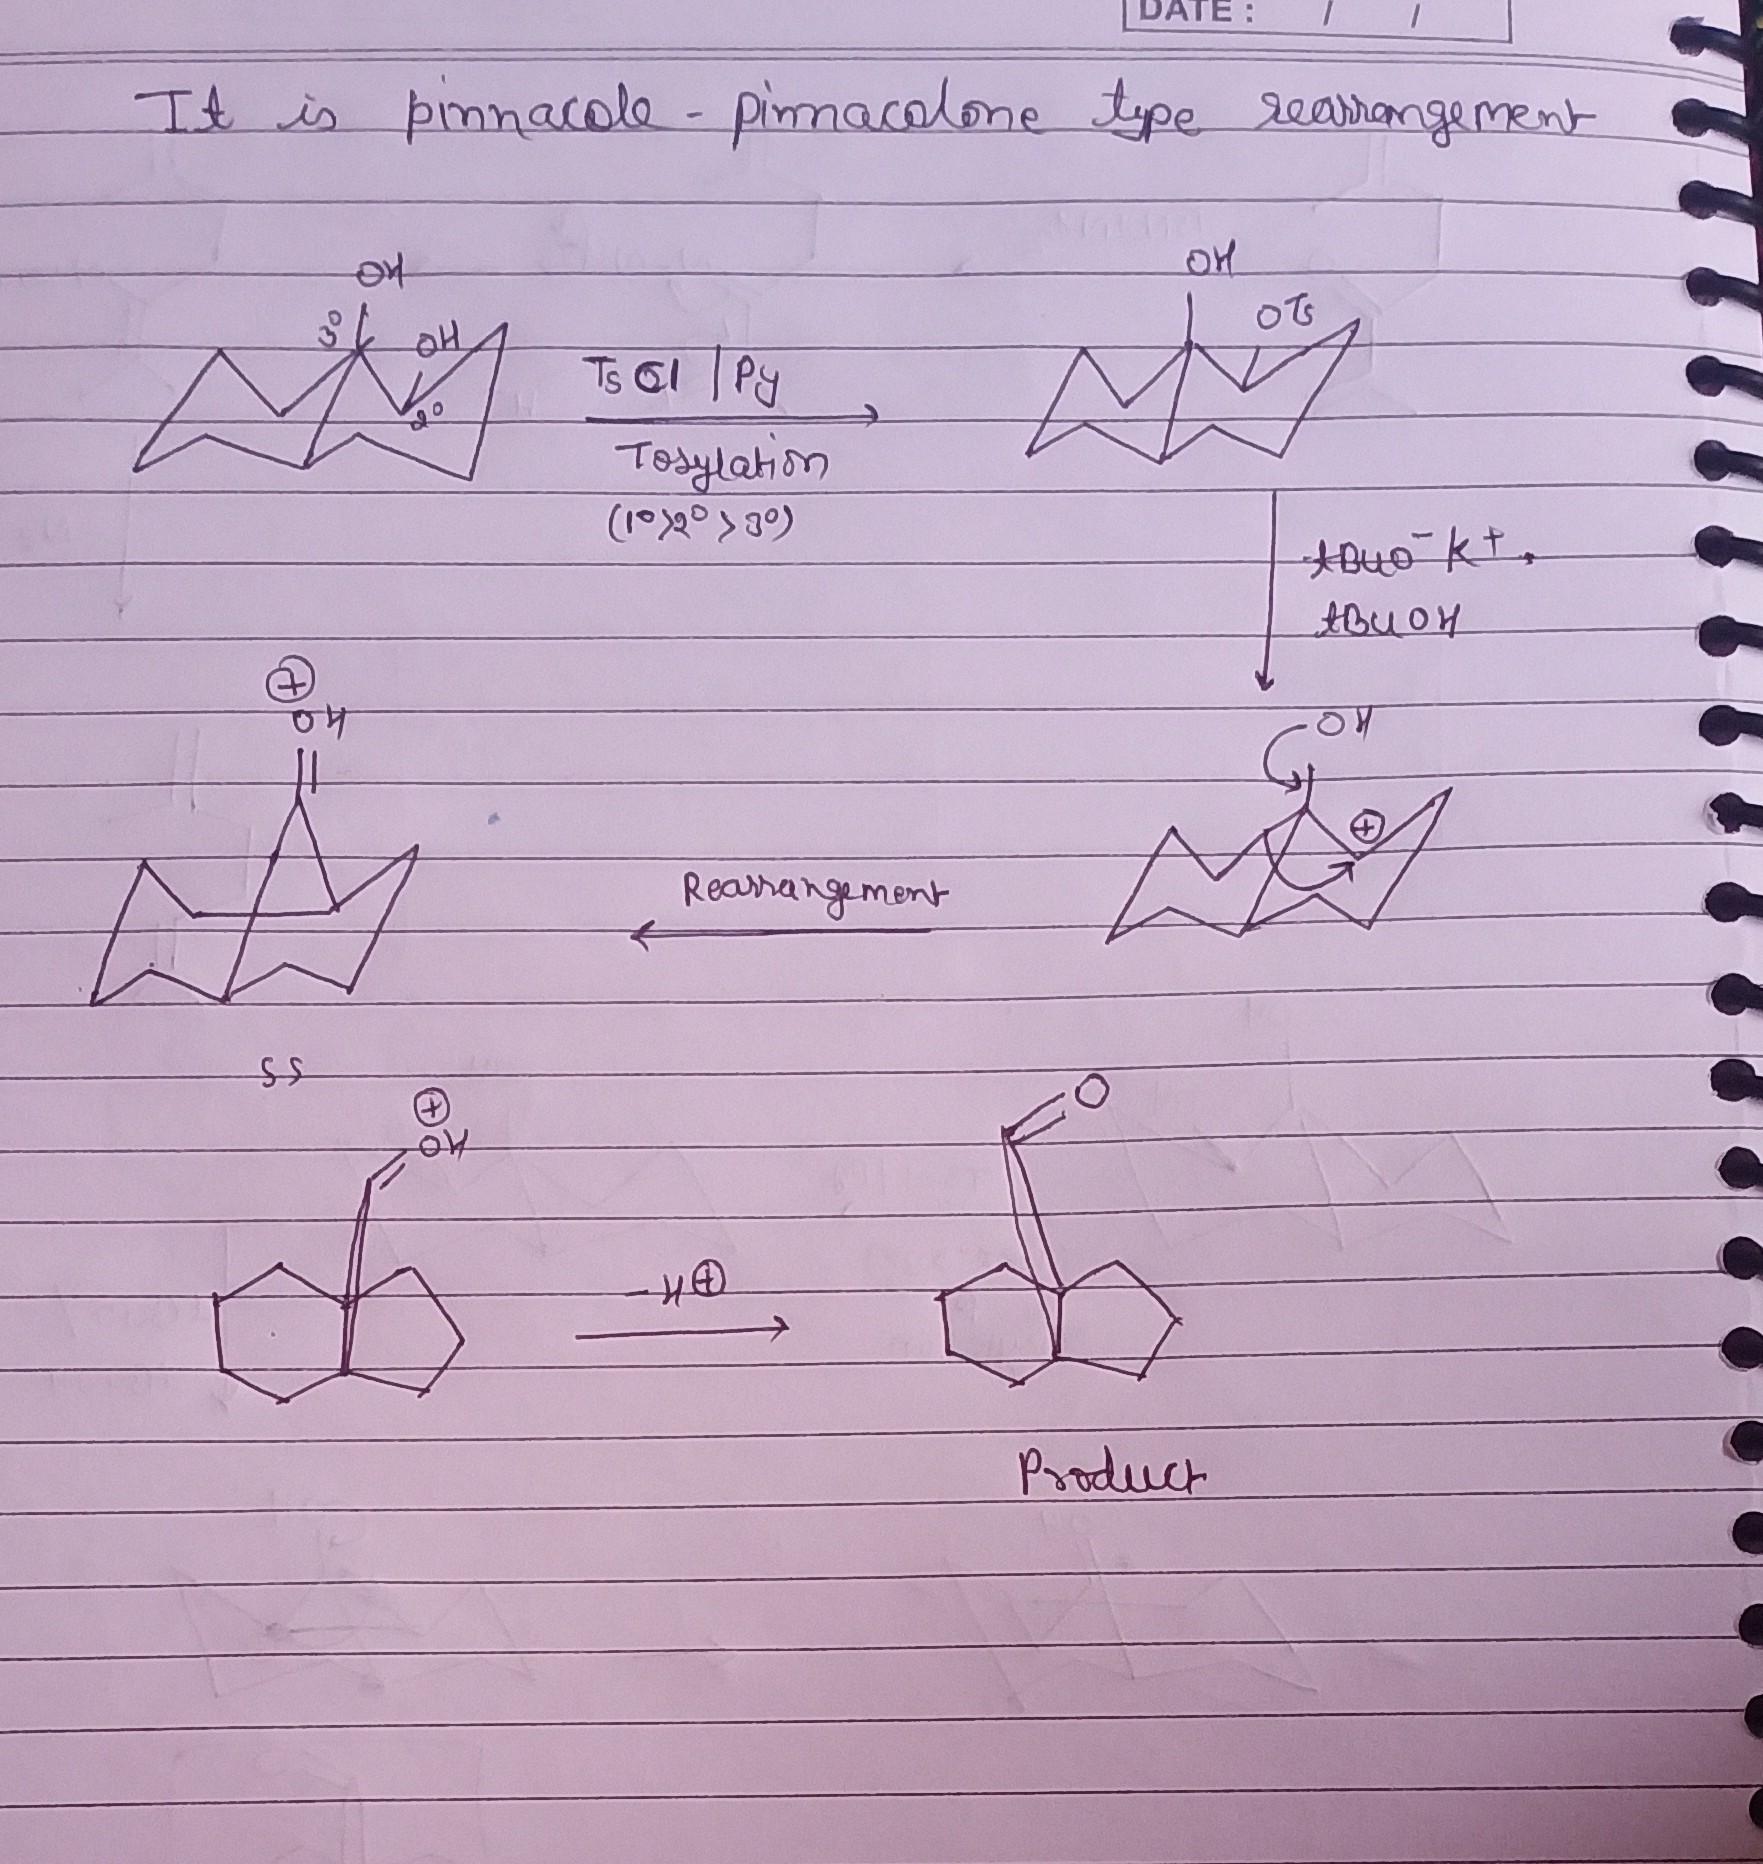 DATE: / /
It is pinnacole - pinnacolone type rearrangement
OH
3° OH
2°
TsCl | Py
Tosylation
(1°>2°>3°)
OH
OTs
tBuO⁻K⁺,
tBuOH
⊕
OH
OH
⊕
Rearrangement
SS
⊕
OH
-H⊕
O
Product